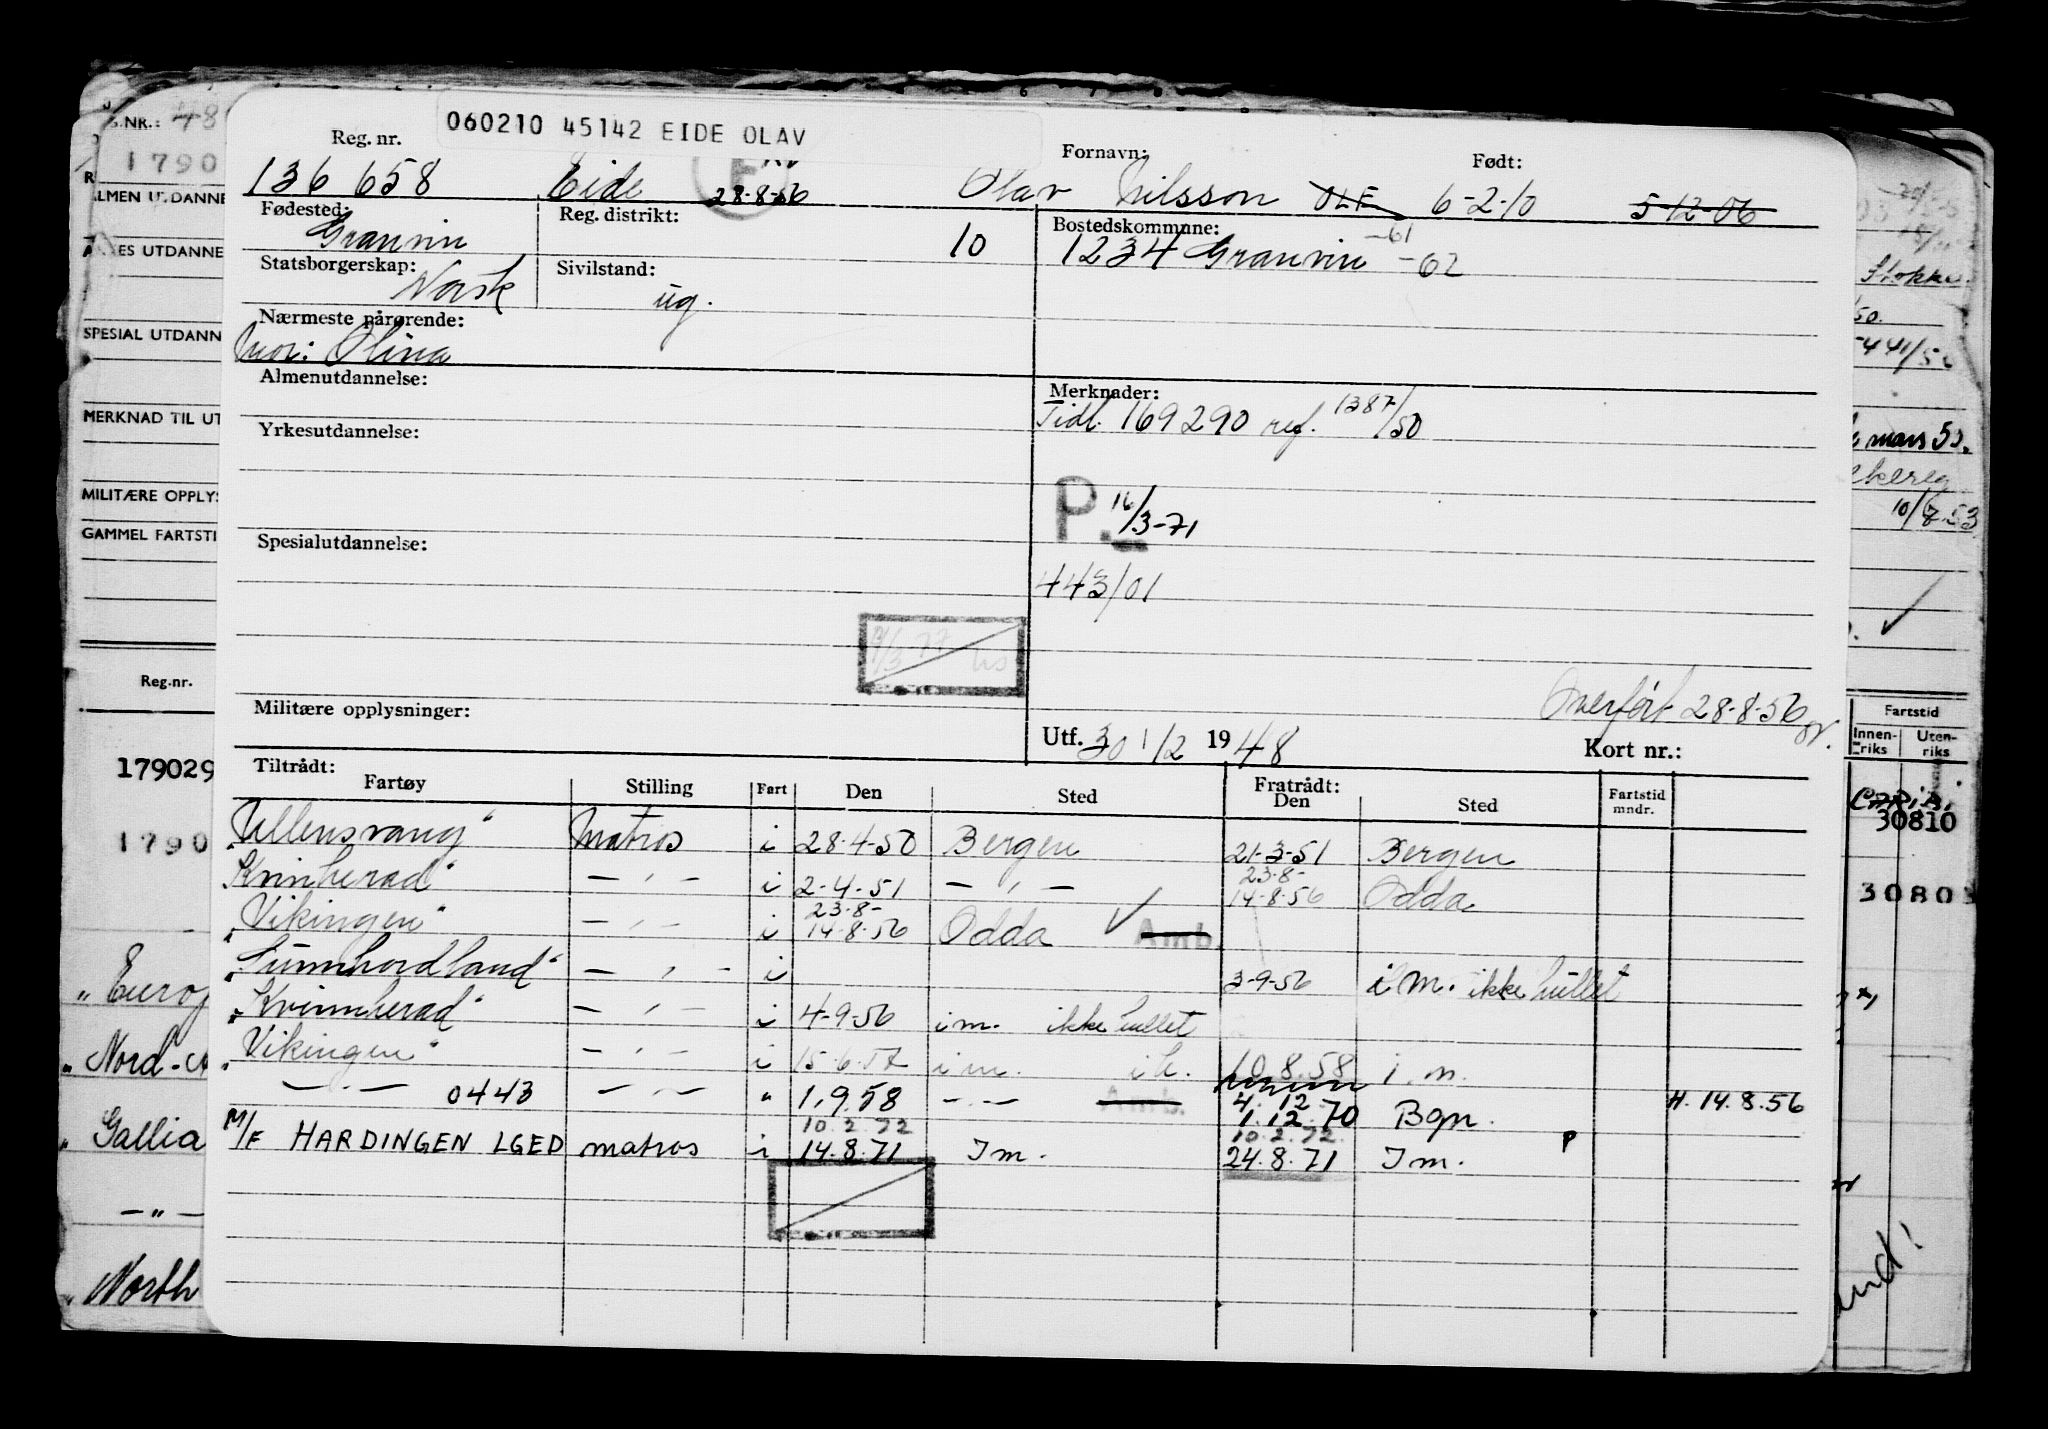 060210 45142 EIDE OLAV
Reg. nr. Fornavn: Født:
136 658 Eide 28-8-56 Olav Nilsson OLE 6-2-10 5-12-06
Fødested: Reg. distrikt: Bostedskommune:
Granvin 10 1234 Granvin -61 -62
Statsborgerskap: Sivilstand:
Norsk ug.
Nærmeste pårørende:
Mor: Olina
Almenutdannelse: Merknader:
Tidl. 169290 ref. 1387/50
Yrkesutdannelse:
P. 16/3-71
Spesialutdannelse:
443/01
Overført 28-8-56
Militære opplysninger:
Utf. 30 1/2 1948 Kort nr.:
Tiltrådt: Fratrådt:
Fartøy Stilling Fart Den Sted Den Sted Fartstid mndr.
Ullensvang" Matros i 28-4-50 Bergen 21-3-51 Bergen
Kvinherad" — " — i 2-4-51 — " — 23-8- 14-8-56 Odda
"Vikingen" — " — i 23-8- 14-8-56 Odda Amb. 
"Sunnhordland" — " — i 3-9-56 i m. ikke hullet
"Kvinnherad" — " — i 4-9-56 i m. ikke hullet
"Vikingen" — " — i 15-6-57 i m. i h. 10.8.58 i.m.
— " — 0443 — " — " 1.9.58 — " — Amb. 4.12 1.12.70 Bgn. H. 14.8.56
10.2.72 10.2.72.
M/F HARDINGEN LGED matros i 14.8.71 Im. 24.8.71 Im. P
S.NR.: 48
1790
ALMEN UTDANNE
SPESIAL UTDANN
MERKNAD TIL UT
MILITÆRE OPPLYS
GAMMEL FARTSTI
Reg.nr.
179029
1790
"Europ
"Nord-A
"Gallia
— " —
"North
-441/5
mars 53.
10/8-53
Fartstid
Innenriks Utenriks
30810
3080